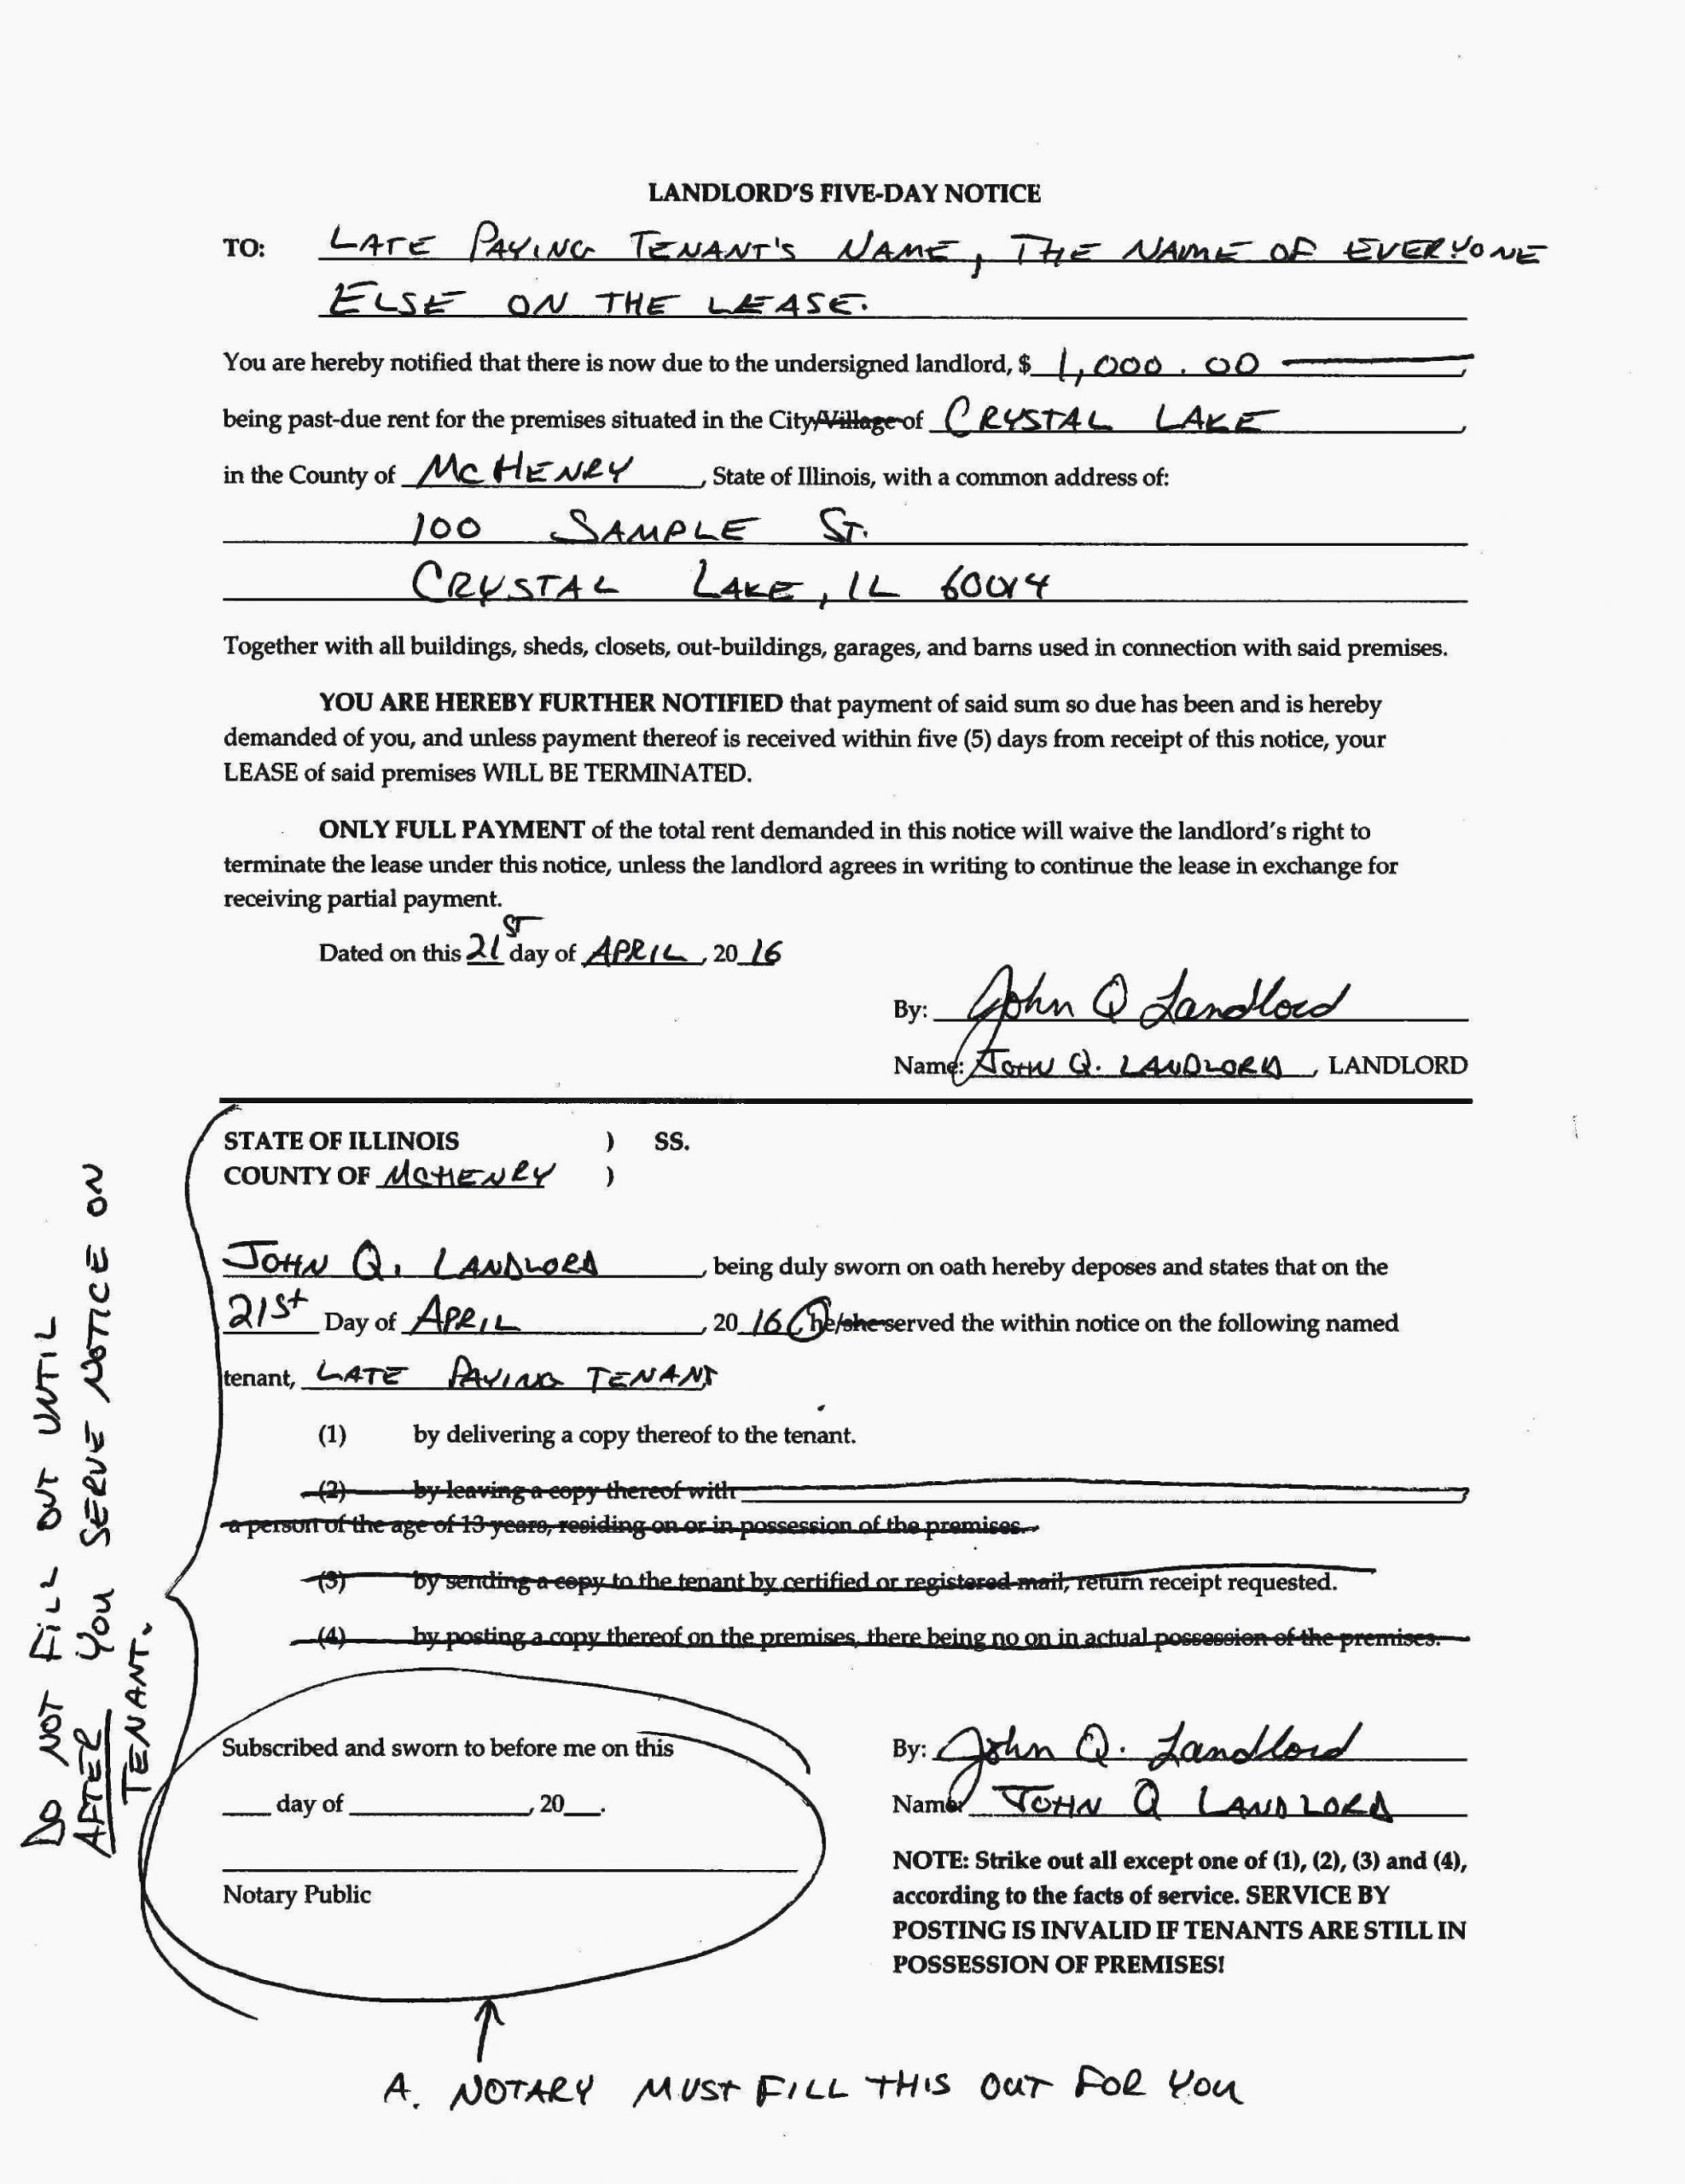 LANDLORD'S FIVE-DAY NOTICE
TO: LATE PAYING TENANT'S NAME, THE NAME OF EVERYONE
ELSE ON THE LEASE.
You are hereby notified that there is now due to the undersigned landlord, $ 1,000.00,
being past-due rent for the premises situated in the City/Village of CRYSTAL LAKE,
in the County of MCHENRY, State of Illinois, with a common address of:
100 SAMPLE ST.
CRYSTAL LAKE, IL 60014
Together with all buildings, sheds, closets, out-buildings, garages, and barns used in connection with said premises.
YOU ARE HEREBY FURTHER NOTIFIED that payment of said sum so due has been and is hereby
demanded of you, and unless payment thereof is received within five (5) days from receipt of this notice, your
LEASE of said premises WILL BE TERMINATED.
ONLY FULL PAYMENT of the total rent demanded in this notice will waive the landlord's right to
terminate the lease under this notice, unless the landlord agrees in writing to continue the lease in exchange for
receiving partial payment.
Dated on this 21ST day of APRIL, 2016
By: John Q Landlord
Name: JOHN Q. LANDLORD, LANDLORD
STATE OF ILLINOIS ) SS.
COUNTY OF MCHENRY )
JOHN Q. LANDLORD, being duly sworn on oath hereby deposes and states that on the
21st Day of APRIL, 2016 he/she served the within notice on the following named
tenant, LATE PAYING TENANT
(1) by delivering a copy thereof to the tenant.
(2) by leaving a copy thereof with
a person of the age of 13 years, residing on or in possession of the premises.
(3) by sending a copy to the tenant by certified or registered mail, return receipt requested.
(4) by posting a copy thereof on the premises, there being no on in actual possession of the premises.
DO NOT FILL OUT UNTIL
AFTER YOU SERVE NOTICE ON
TENANT.
Subscribed and sworn to before me on this
day of , 20 .
Notary Public
By: John Q. Landlord
Name: JOHN Q LANDLORD
NOTE: Strike out all except one of (1), (2), (3) and (4),
according to the facts of service. SERVICE BY
POSTING IS INVALID IF TENANTS ARE STILL IN
POSSESSION OF PREMISES!
A. NOTARY MUST FILL THIS OUT FOR YOU